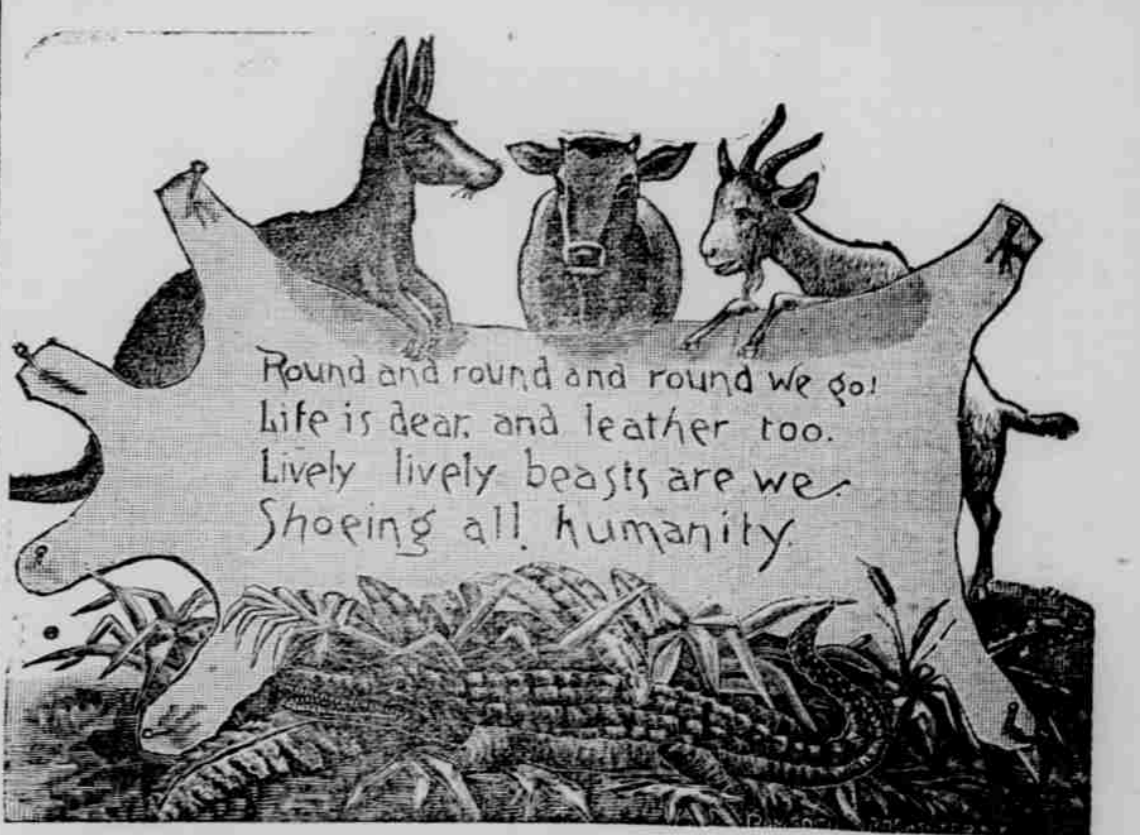 Round and round and round we go!
Life is dear, and leather too.
Lively lively beasts are we
Shoeing all humanity.